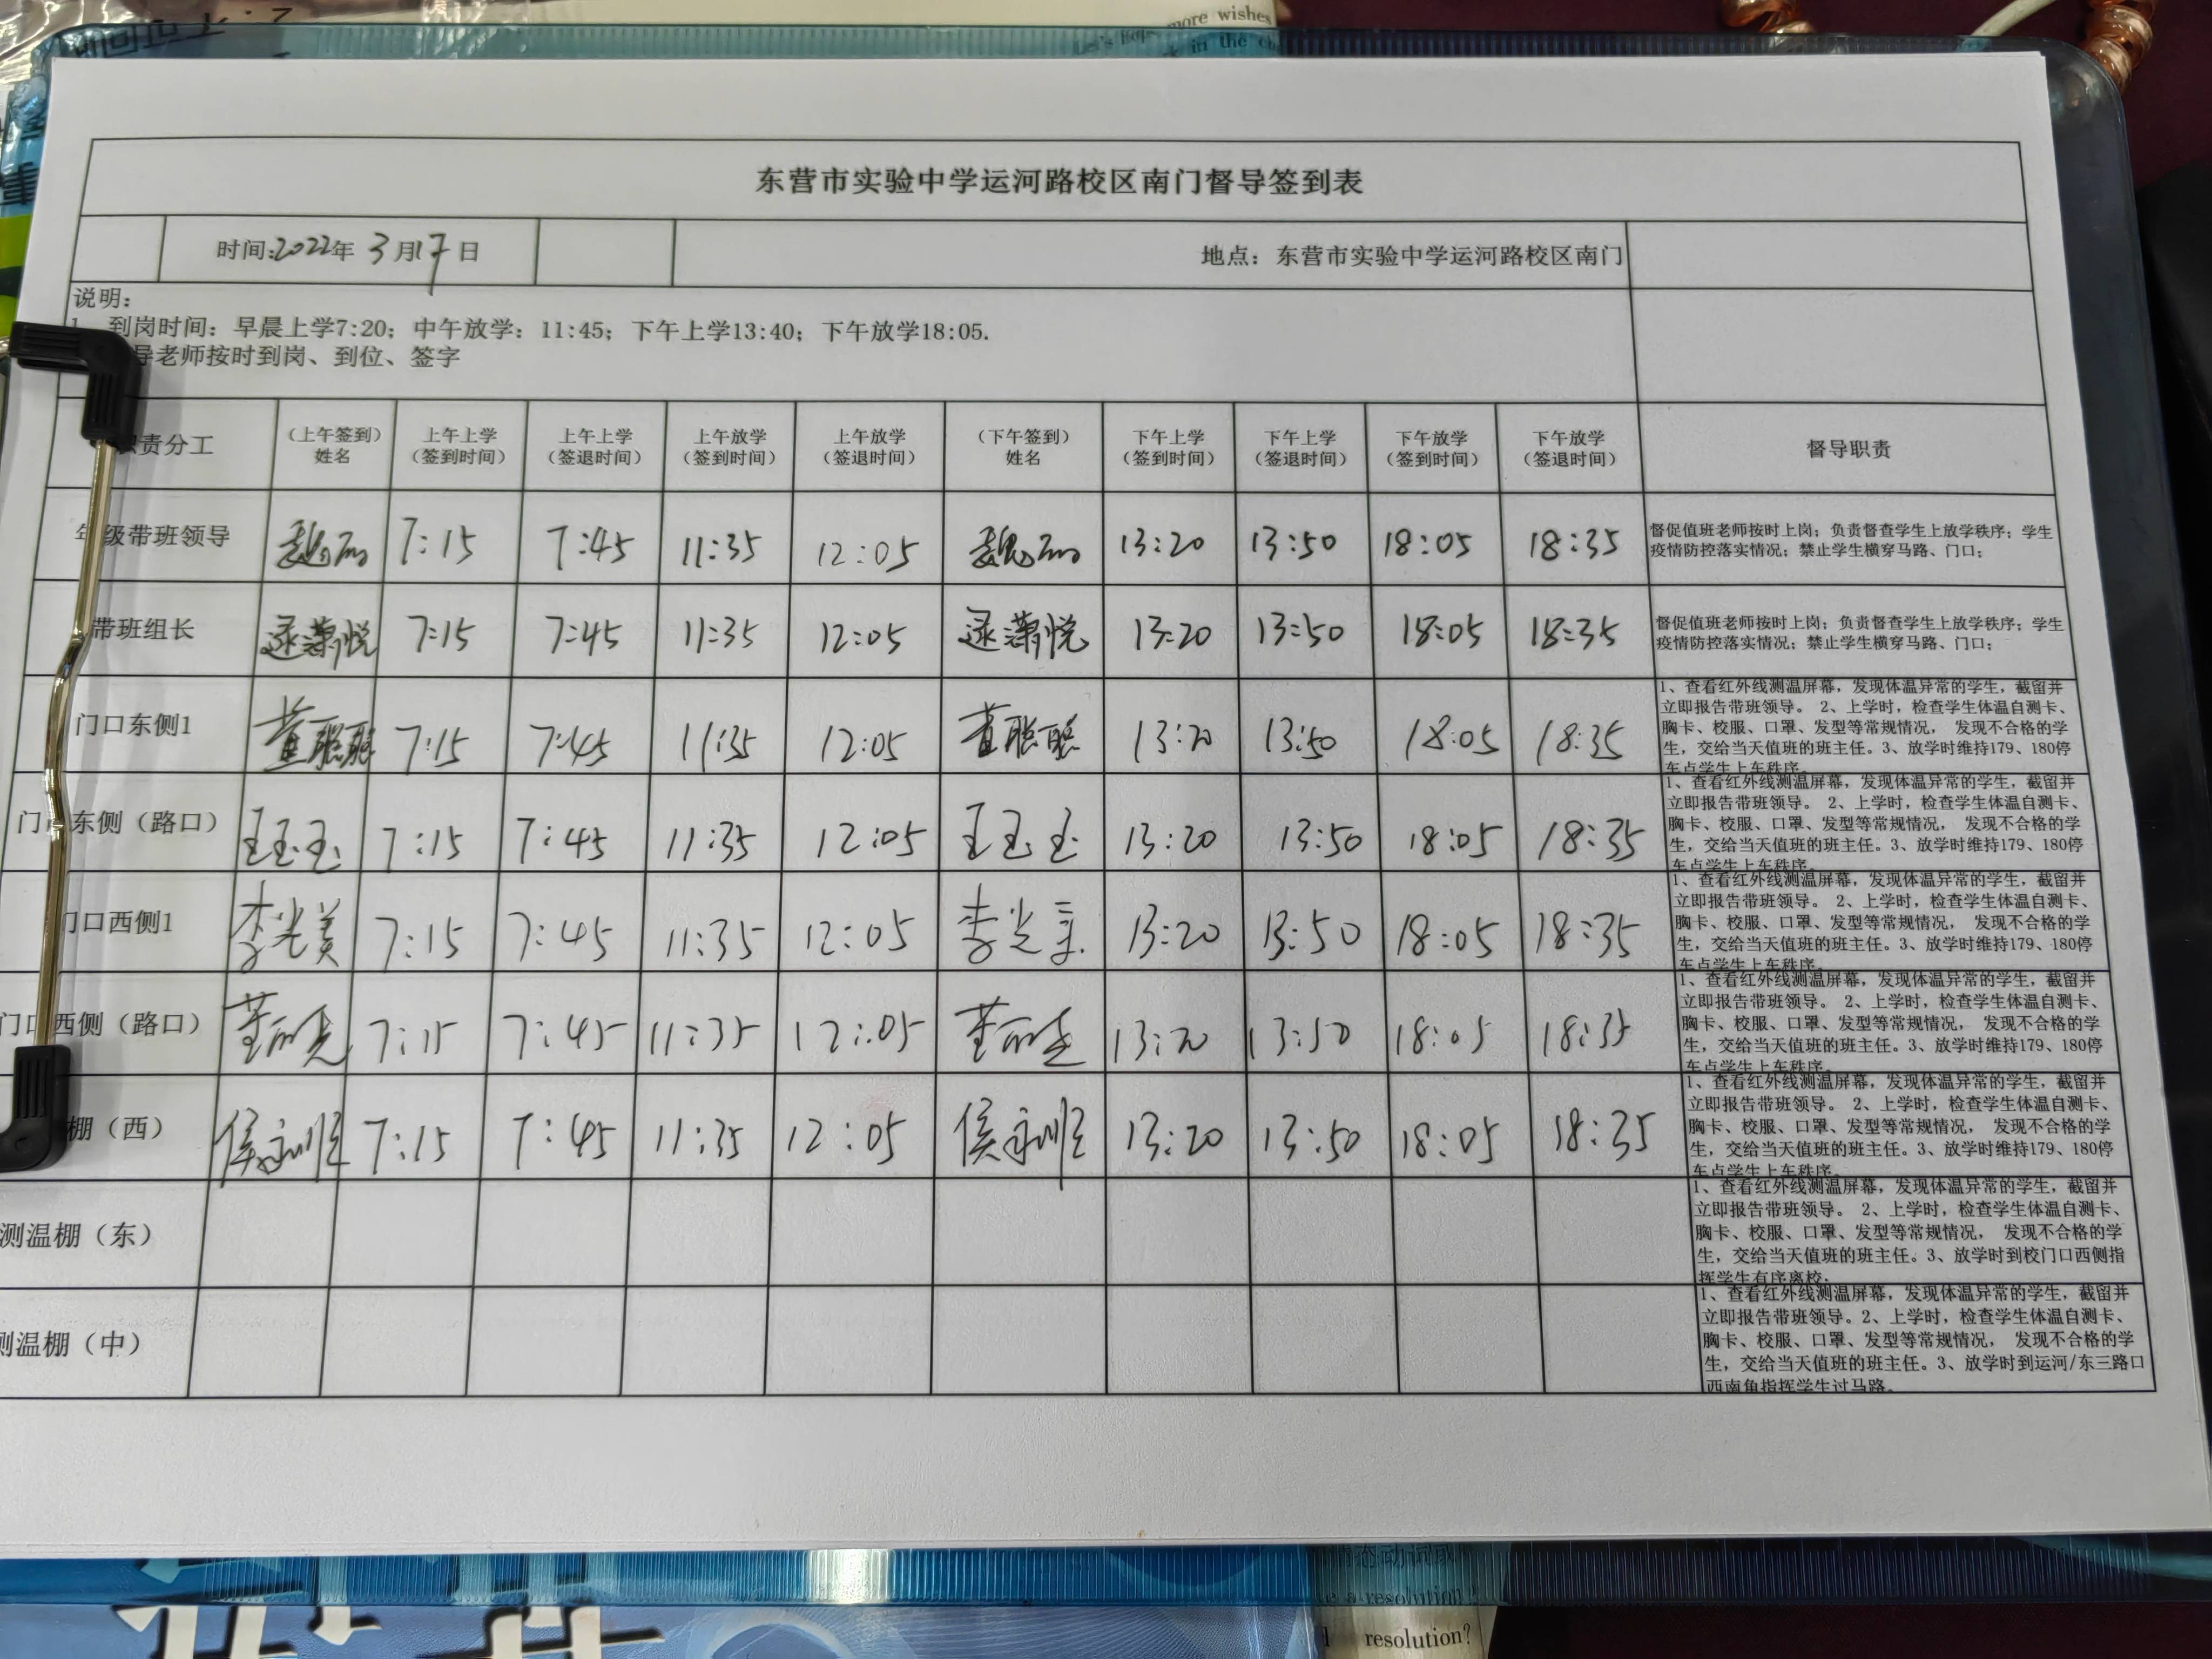 more wishes
in the
东营市实验中学运河路校区南门督导签到表
时间:2022年 3月17日
地点：东营市实验中学运河路校区南门
说明：
1、到岗时间：早晨上学7:20；中午放学：11:45；下午上学13:40；下午放学18:05.
导老师按时到岗、到位、签字
职责分工 （上午签到）姓名 上午上学（签到时间） 上午上学（签退时间） 上午放学（签到时间） 上午放学（签退时间） （下午签到）姓名 下午上学（签到时间） 下午上学（签退时间） 下午放学（签到时间） 下午放学（签退时间） 督导职责
年级带班领导 7:15 7:45 11:35 12:05 13:20 13:50 18:05 18:35
督促值班老师按时上岗；负责督查学生上放学秩序；学生
疫情防控落实情况；禁止学生横穿马路、门口；
带班组长 逯潇悦 7:15 7:45 11:35 12:05 逯潇悦 13:20 13:50 18:05 18:35
督促值班老师按时上岗；负责督查学生上放学秩序；学生
疫情防控落实情况；禁止学生横穿马路、门口；
门口东侧1 董聪聪 7:15 7:45 11:35 12:05 董聪聪 13:20 13:50 18:05 18:35
1、查看红外线测温屏幕，发现体温异常的学生，截留并
立即报告带班领导。 2、上学时，检查学生体温自测卡、
胸卡、校服、口罩、发型等常规情况， 发现不合格的学
生，交给当天值班的班主任。3、放学时维持179、180停
车点学生上车秩序。
门口东侧（路口） 王玉玉 7:15 7:45 11:35 12:05 王玉玉 13:20 13:50 18:05 18:35
1、查看红外线测温屏幕，发现体温异常的学生，截留并
立即报告带班领导。 2、上学时，检查学生体温自测卡、
胸卡、校服、口罩、发型等常规情况， 发现不合格的学
生，交给当天值班的班主任。3、放学时维持179、180停
车点学生上车秩序。
门口西侧1 李光美 7:15 7:45 11:35 12:05 李光美 13:20 13:50 18:05 18:35
1、查看红外线测温屏幕，发现体温异常的学生，截留并
立即报告带班领导。 2、上学时，检查学生体温自测卡、
胸卡、校服、口罩、发型等常规情况， 发现不合格的学
生，交给当天值班的班主任。3、放学时维持179、180停
车点学生上车秩序。
门口西侧（路口） 7:15 7:45 11:35 12:05 13:20 13:50 18:05 18:35
1、查看红外线测温屏幕，发现体温异常的学生，截留并
立即报告带班领导。 2、上学时，检查学生体温自测卡、
胸卡、校服、口罩、发型等常规情况， 发现不合格的学
生，交给当天值班的班主任。3、放学时维持179、180停
车点学生上车秩序。
棚（西） 侯永顺 7:15 7:45 11:35 12:05 侯永顺 13:20 13:50 18:05 18:35
1、查看红外线测温屏幕，发现体温异常的学生，截留并
立即报告带班领导。 2、上学时，检查学生体温自测卡、
胸卡、校服、口罩、发型等常规情况， 发现不合格的学
生，交给当天值班的班主任。3、放学时维持179、180停
车点学生上车秩序。
测温棚（东）
1、查看红外线测温屏幕，发现体温异常的学生，截留并
立即报告带班领导。 2、上学时，检查学生体温自测卡、
胸卡、校服、口罩、发型等常规情况， 发现不合格的学
生，交给当天值班的班主任。3、放学时到校门口西侧指
挥学生有序离校.
测温棚（中）
1、查看红外线测温屏幕，发现体温异常的学生，截留并
立即报告带班领导。2、上学时，检查学生体温自测卡、
胸卡、校服、口罩、发型等常规情况， 发现不合格的学
生，交给当天值班的班主任。3、放学时到运河/东三路口
西南角指挥学生过马路。
a resolution
resolution?